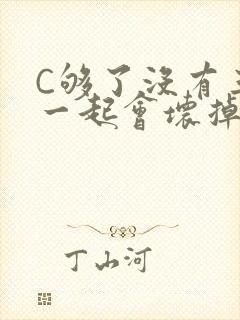 C够了没有
一起会壊掉
丁山河